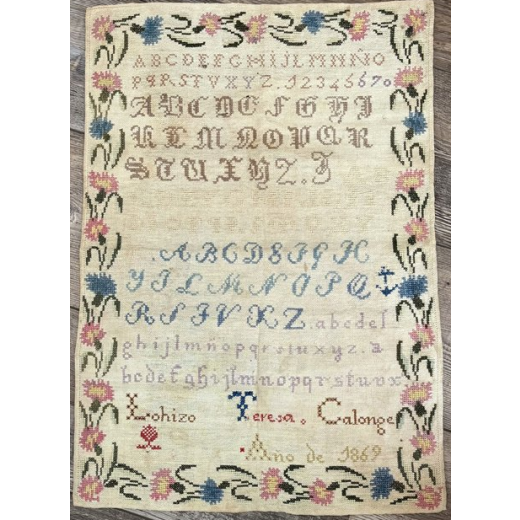 ABCDEFGHIJLMNÑO
PQRSTVXYZ.1234567o
ABCDEFGHI
KLMNOPQR
STUXYZ.J
.ABCDEFGH
YILMNOPQ
RSTVXZ.abcdef
ghijlmñopqrstuxyz.a
bcdefghijlmnopqrstuvx
Lo hizo Teresa. Calonge
Ano de 1869